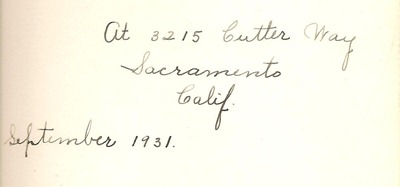 At 3215 Cutter Way
Sacramento
Calif.
September 1931.